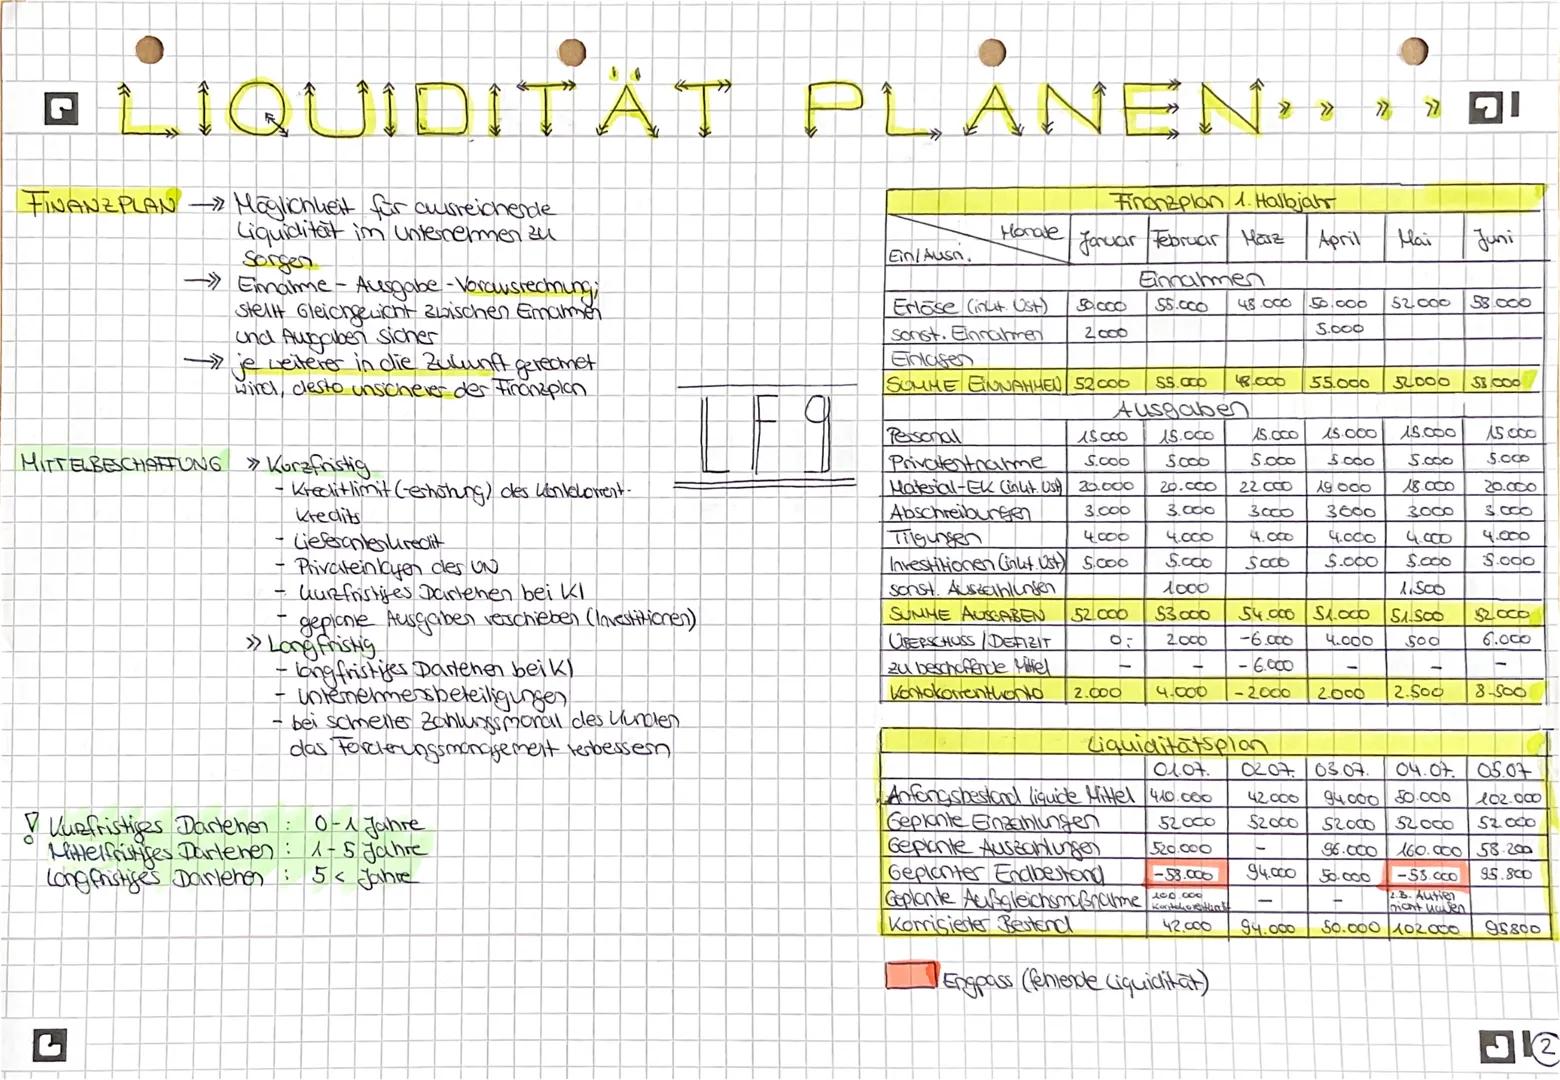 LIQUIDITÄT PLANEN
FINANZPLAN → Möglichkeit für ausreichende
Liquidität im Unternehmen zu
sorgen
→ Einnahme - Ausgabe - Vorausrechnung;
stellt Gleichgewicht zwischen Einnahmen
und Ausgaben sicher
→ je weiterer in die Zukunft gerechnet
wird, desto unsicherer der Finanzplan
LF9
MITTELBESCHAFFUNG » Kurzfristig
- Kreditlimit (-erhöhung) des Kontokorrent-
kredits
- Lieferantenkredit
- Privateinlagen des UN
- kurzfristiges Darlehen bei KI
- geplante Ausgaben verschieben (Investitionen)
» Langfristig
- langfristiges Darlehen bei KI
- Unternehmensbeteiligungen
- bei schneller Zahlungsmoral des Kunden
das Forderungsmanagement verbessern
! Kurzfristiges Darlehen : 0-1 Jahre
Mittelfristiges Darlehen : 1-5 Jahre
Langfristiges Darlehen : 5 < Jahre
Finanzplan 1. Halbjahr
Monate
Ein/Ausn. Januar Februar März April Mai Juni
Einnahmen
Erlöse (inkl. Ust) 50.000 55.000 48.000 50.000 52.000 58.000
sonst. Einnahmen 2.000 5.000
Einlagen
SUMME EINNAHMEN 52.000 55.000 48.000 55.000 52.000 58.000
Ausgaben
Personal 15.000 15.000 15.000 15.000 15.000 15.000
Privatentnahme 5.000 5.000 5.000 5.000 5.000 5.000
Material-EK (inkl. Ust) 20.000 20.000 22.000 19.000 18.000 20.000
Abschreibungen 3.000 3.000 3.000 3.000 3.000 3.000
Tilgungen 4.000 4.000 4.000 4.000 4.000 4.000
Investitionen (inkl. Ust) 5.000 5.000 5.000 5.000 5.000 5.000
sonst. Auszahlungen 1.000 1.500
SUMME AUSGABEN 52.000 53.000 54.000 51.000 51.500 52.000
ÜBERSCHUSS / DEFIZIT 0,- 2.000 -6.000 4.000 500 6.000
zu beschaffende Mittel - - -6.000 - - -
Kontokorrentkonto 2.000 4.000 -2000 2.000 2.500 8.500
Liquiditätsplan
01.07. 02.07. 03.07. 04.07. 05.07
Anfangsbestand liquide Mittel 410.000 42.000 94.000 50.000 102.000
Geplante Einzahlungen 52.000 52.000 52.000 52.000 52.000
Geplante Auszahlungen 520.000 - 96.000 160.000 58.200
Geplanter Endbestand -58.000 94.000 50.000 -58.000 95.800
Geplante Außgleichsmaßnahme 100.000 - - z.B. Aktien
nicht kaufen
Korrigierter Bestand 42.000 94.000 50.000 102.000 95800
Engpass (fehlende Liquidität)
2